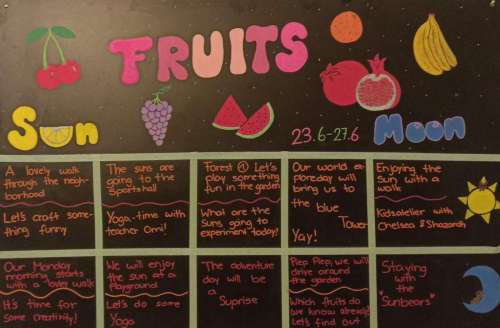 FRUITS
Sun
23.6-27.6
Moon
A lovely walk
through the neigh-
borhood
Let's craft some-
thing funny
The suns are
going to the
Sportshall
Yoga-time with
teacher
Forest ① Let's
play something
fun in the garden
What are the
Suns going to
experiment today?
Our world
ploreday will
bring us to
the blue
Tower
Yay!
Enjoying the
Sun with a
walk
Kidsatelier with
Chelsea &
Our Monday
morning starts
with a walk
It's time for
some creativity!
We will enjoy
the sun at a
Playground
Let's do some
Yoga
The adventure
day will
be a
Suprise
Piep Piep, we will
drive around
the garden
Which fruits do
we know already?
Let's find out
Staying
with the
"Sunbears"